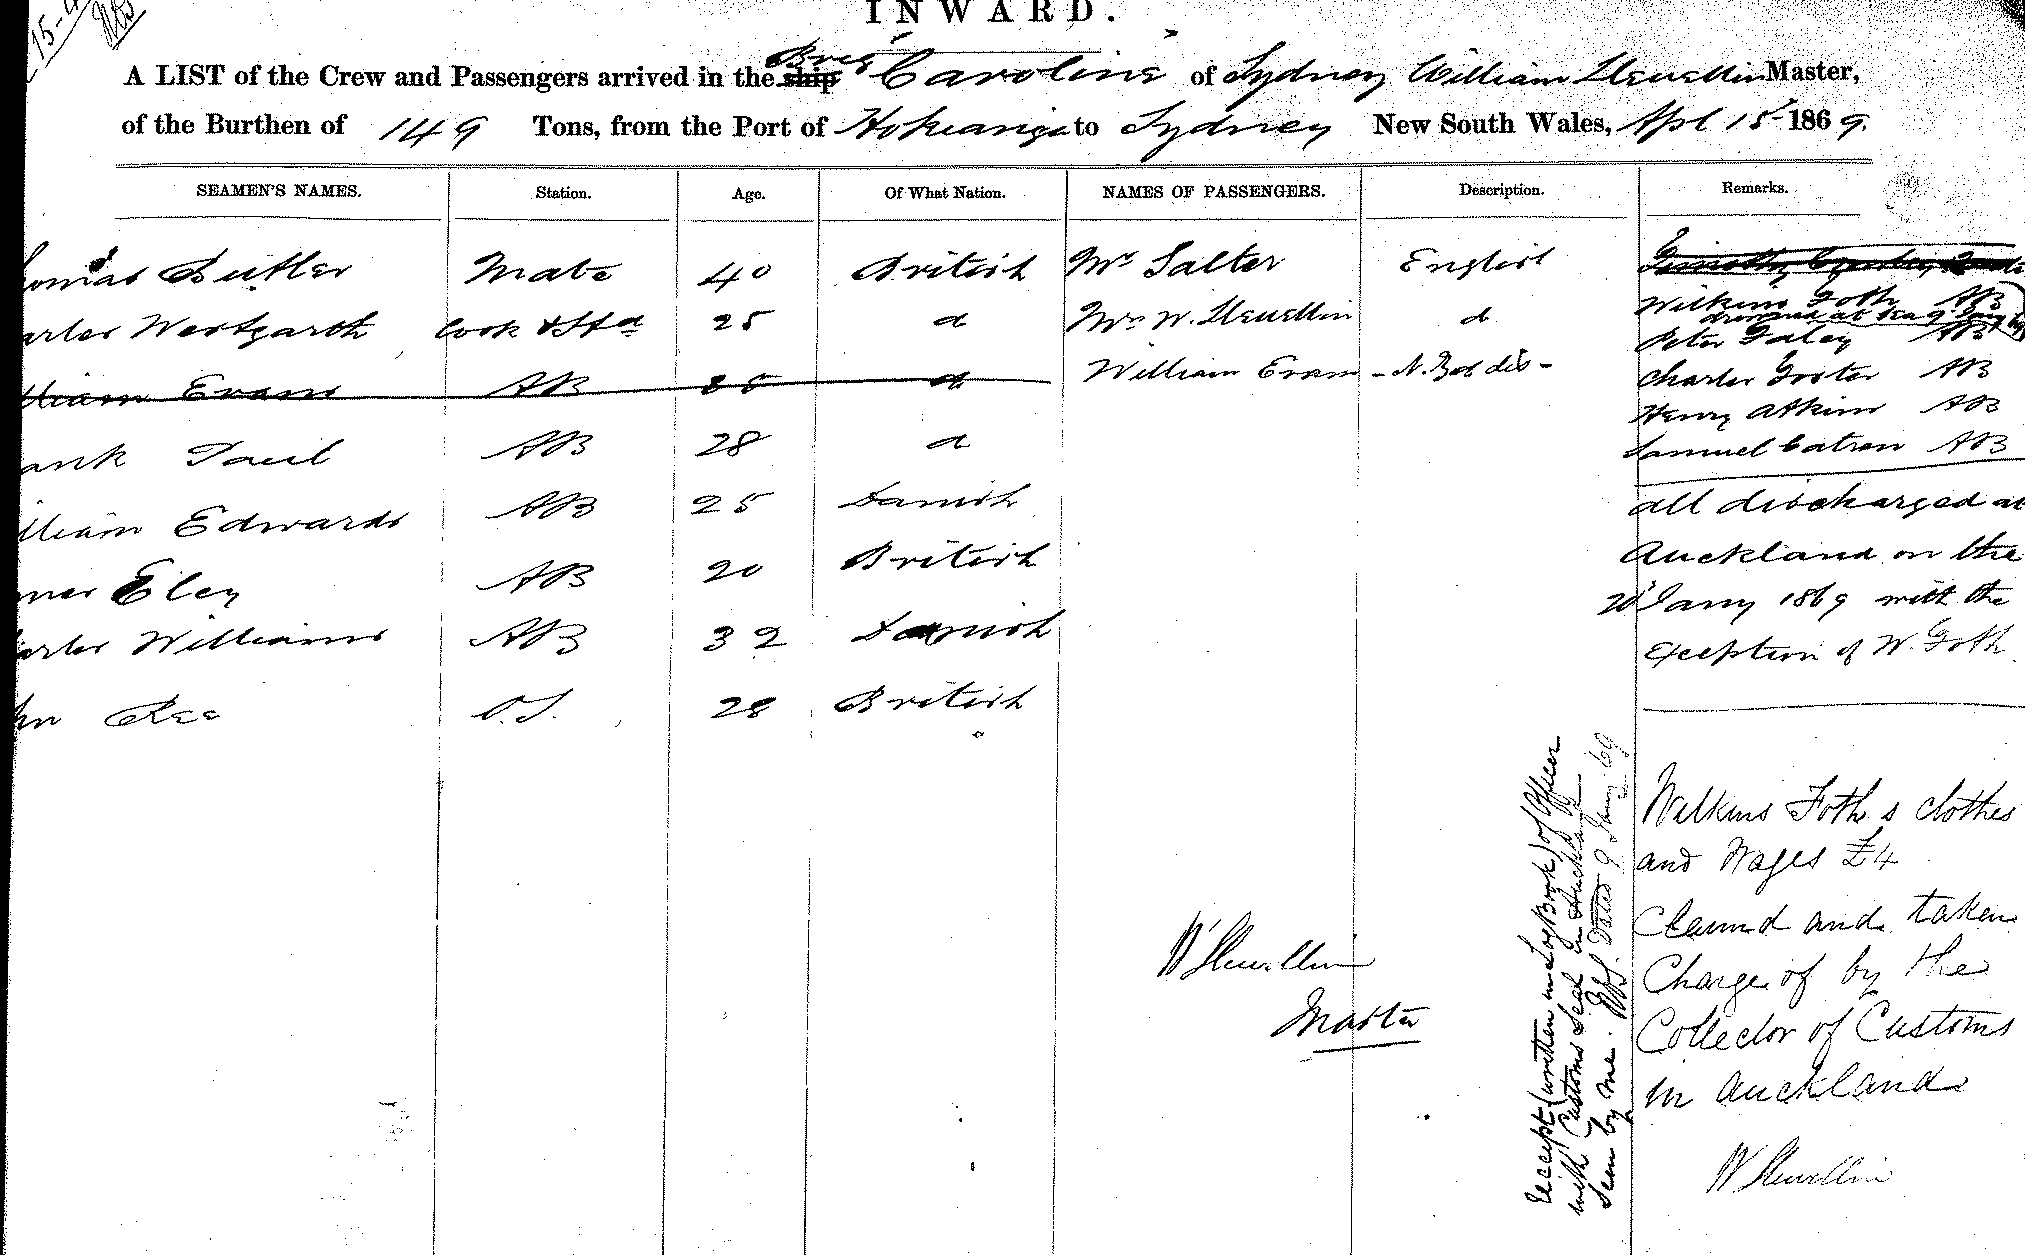 15-4
INWARD.
A LIST of the Crew and Passengers arrived in the ship Brig Caroline of Sydney William Llewellin Master,
of the Burthen of 149 Tons, from the Port of Hokianga to Sydney New South Wales, Apl 15 1869.
SEAMEN'S NAMES. Station. Age. Of What Nation. NAMES OF PASSENGERS. Description. Remarks.
omas Butler Mate 40 British Mr Salter English Timothy
arles Westgarth Cook & Std 25 d Mrs W. Llewellin d Wilkins Foth AB
drowned at sea 9 Jany
Peter Faley AB
lliam Evans AB 25 d William Evans Charles Foster AB
Henry Atkins AB
ank Paul AB 28 d Samuel Catron AB
lliam Edwards AB 25 Danish all discharged at
mes Eley AB 20 British Auckland on the
20 Jany 1869 with the
arles Williams AB 32 Danish exception of W. Foth
hn Ree O.S. 28 British
Wilkins Foth s clothes
and Wages £4
Claimd and taken
Charge of by the
Collector of Customs
in Auckland
W Llewellin
W Llewellin
Master
receipt (written in Log Book) of Officer
with Customs Seal in Auckland
Seen by me. Dated 9 Jany 69